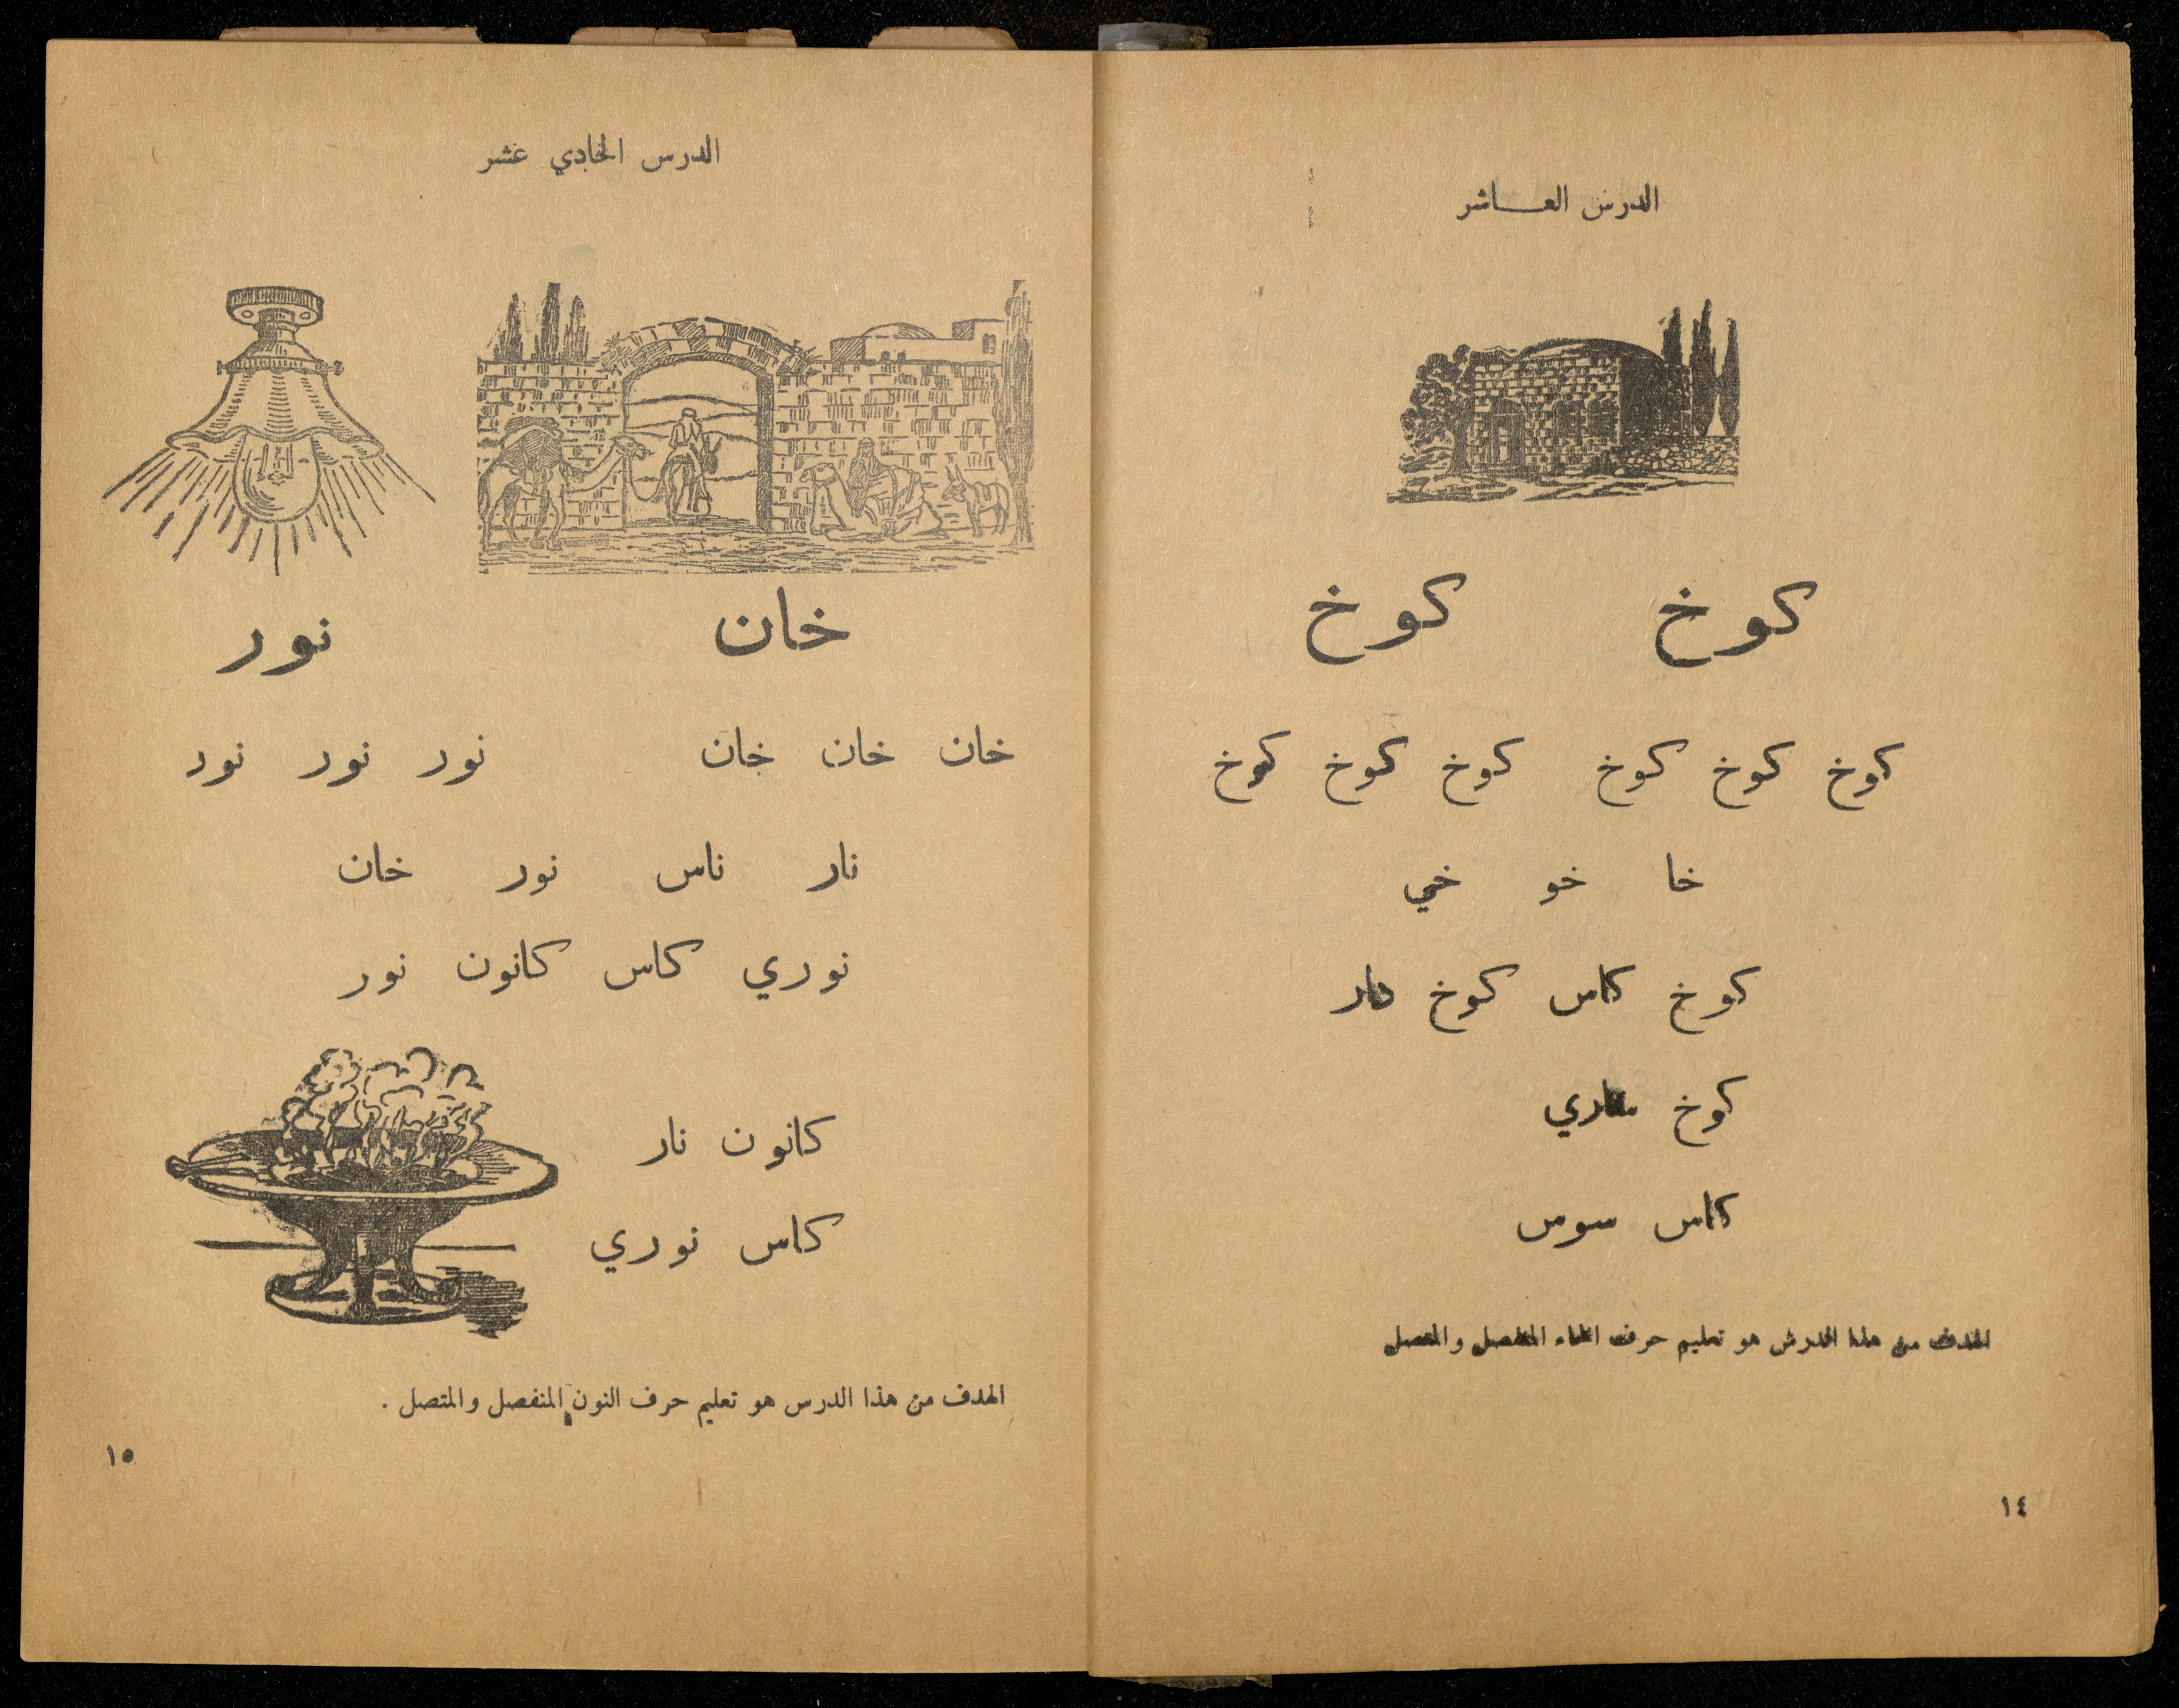 الدرس العـــاشر
كوخ كوخ
كوخ كوخ كوخ كوخ كوخ كوخ
خا خو خي
كوخ كاس كوخ دار
كوخ ساري
كاس سوس
الهدف من هذا الدرس هو تعليم حرف الخاء المنفصل والمتصل
١٤
الدرس الحادي عشر
خان نور
خان خان خان نور نور نور
نار ناس نور خان
نوري كاس كانون نور
كانون نار
كاس نوري
الهدف من هذا الدرس هو تعليم حرف النون المنفصل والمتصل .
١٥